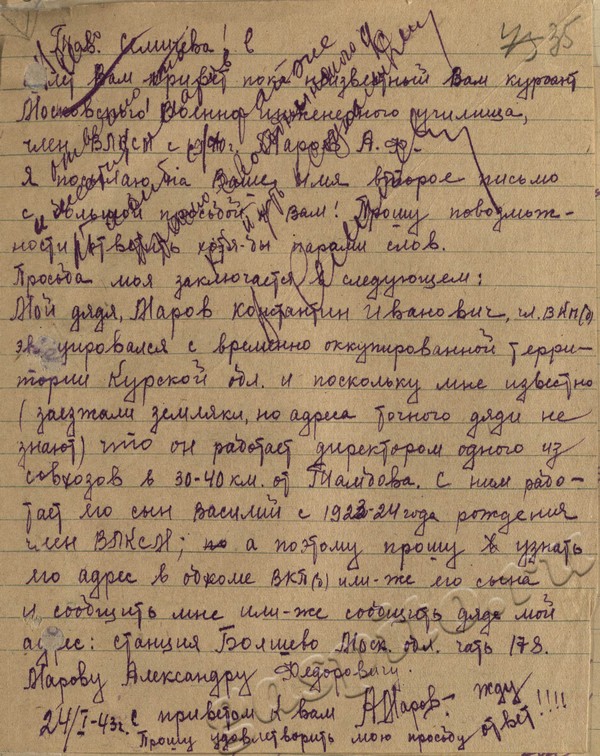 45 35
Тов. Семичева!
Шлет Вам привет пока неизвестный Вам курсант
Московского Военно-инженерного училища,
член ВЛКСМ с г. Маров А. Ф.
Я посылаю на Ваше имя второе письмо
с большой просьбой к Вам! Прошу повозмож-
ности ответить хотя-бы парами слов.
Просьба моя заключается в следующем:
Мой дядя, Маров Константин Иванович, чл. ВКП(б)
эвакуировался с временно оккупированной терри-
тории Курской обл. и поскольку мне известно
(заезжали земляки, но адреса точного дяди не
знают) что он работает директором одного из
совхозов в 30-40 км. от Тамбова. С ним рабо-
тает его сын Василий с 1923-24 года рождения
член ВЛКСМ; а поэтому прошу узнать
его адрес в обкоме ВКП(б) или-же его сына
и сообщить мне или-же сообщить дяде мой
адрес: станция Болшево Моск. обл. часть 178.
Марову Александру Федоровичу.
24/I-43г. с приветом к вам АМаров- жду
Прошу удовлетворить мою просьбу ответ!!!!